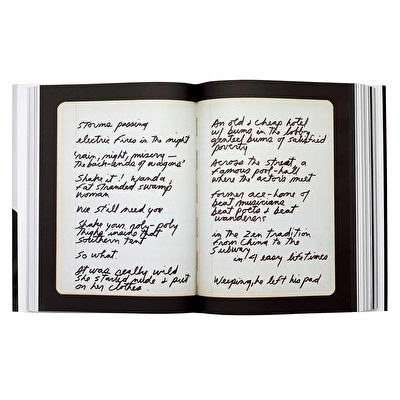 storms passing
electric fires in the night
'rain, night, misery —
the back-ends of wagons'
Shake it!, Wanda
fat stranded swamp
woman
We still need you
Shake your roly-poly
Thighs inside that
Southern tent
So what.
It was really wild
She started nude & put
on her clothes.
An old & cheap hotel
w/ bums in the lobby
genteel bums of satisfied
poverty
Across the street, a
famous pool-hall
where the actors meet
former ace-home of
beat musicians
beat poets & beat
wanderers
in the Zen tradition
from China to the
Subway
in 4 easy lifetimes
Weeping, he left his pad